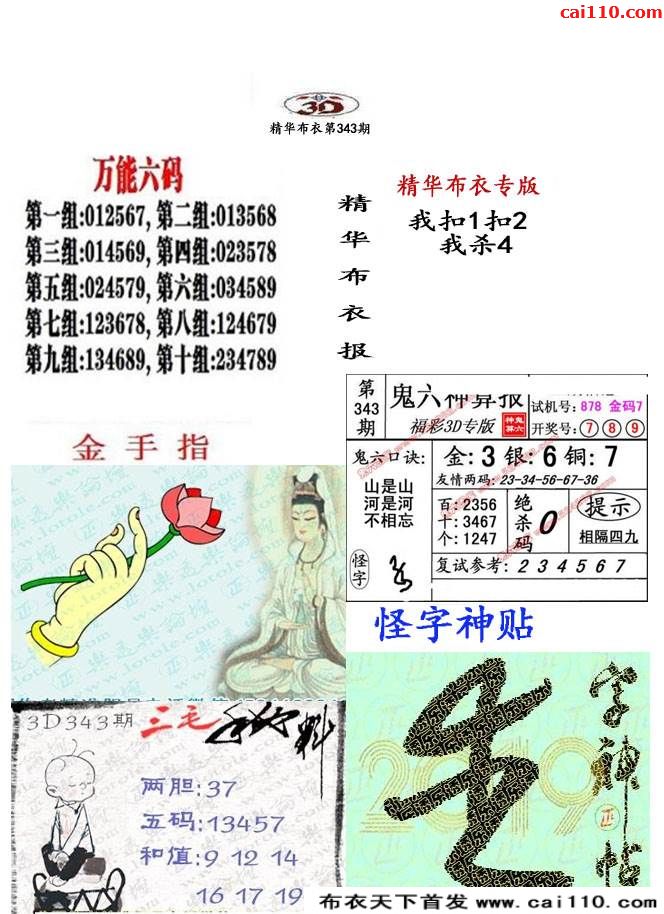 cai110.com
3D
精华布衣第343期
万能六码
第一组:012567,第二组:013568
第三组:014569,第四组:023578
第五组:024579,第六组:034589
第七组:123678,第八组:124679
第九组:134689,第十组:234789
精华布衣报
精华布衣专版
我扣1扣2
我杀4
金手指
第343期
鬼六神算报
福彩3D专版
试机号:878 金码7
开奖号:7 8 9
鬼六口诀:
山是山
河是河
不相忘
怪字
金:3 银:6 铜:7
友情两码:23-34-56-67-36
百:2356
十:3467
个:1247
绝杀码
0
提示
相隔四九
复试参考:2 3 4 5 6 7
怪字神贴
3D343期
三毛
料
两胆:37
五码:13457
和值:9 12 14
16 17 19
2019
字神帖
布衣天下首发 www.cai110.com